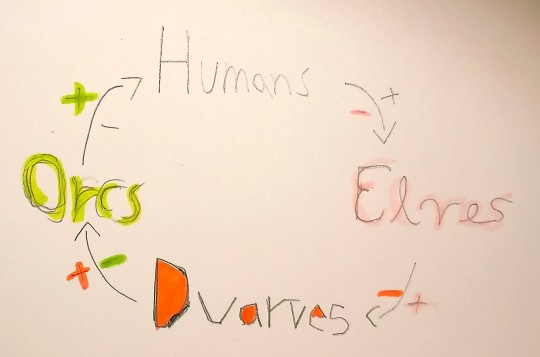 Humans
+ −
− +
Orcs
Elves
+ −
− +
Dwarves